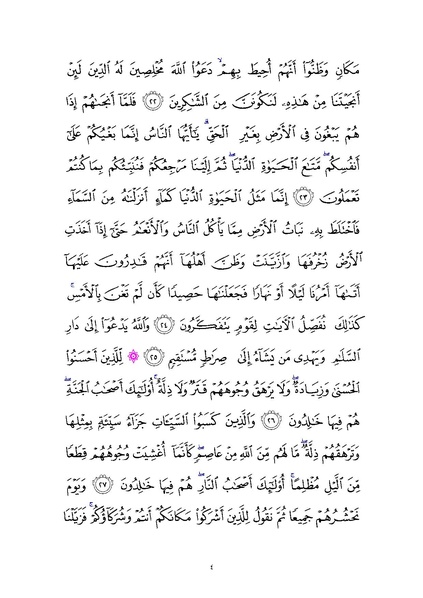 مَكَانٍ وَظَنُّوٓا۟ أَنَّهُمْ أُحِيطَ بِهِمْ ۙ دَعَوُا۟ ٱللَّهَ مُخْلِصِينَ لَهُ ٱلدِّينَ لَئِنْ
أَنجَيْتَنَا مِنْ هَـٰذِهِۦ لَنَكُونَنَّ مِنَ ٱلشَّـٰكِرِينَ ﴿٢٢﴾ فَلَمَّآ أَنجَىٰهُمْ إِذَا
هُمْ يَبْغُونَ فِى ٱلْأَرْضِ بِغَيْرِ ٱلْحَقِّ ۗ يَـٰٓأَيُّهَا ٱلنَّاسُ إِنَّمَا بَغْيُكُمْ عَلَىٰٓ
أَنفُسِكُم ۖ مَّتَـٰعَ ٱلْحَيَوٰةِ ٱلدُّنْيَا ۖ ثُمَّ إِلَيْنَا مَرْجِعُكُمْ فَنُنَبِّئُكُم بِمَا كُنتُمْ
تَعْمَلُونَ ﴿٢٣﴾ إِنَّمَا مَثَلُ ٱلْحَيَوٰةِ ٱلدُّنْيَا كَمَآءٍ أَنزَلْنَـٰهُ مِنَ ٱلسَّمَآءِ
فَٱخْتَلَطَ بِهِۦ نَبَاتُ ٱلْأَرْضِ مِمَّا يَأْكُلُ ٱلنَّاسُ وَٱلْأَنْعَـٰمُ حَتَّىٰٓ إِذَآ أَخَذَتِ
ٱلْأَرْضُ زُخْرُفَهَا وَٱزَّيَّنَتْ وَظَنَّ أَهْلُهَآ أَنَّهُمْ قَـٰدِرُونَ عَلَيْهَآ
أَتَىٰهَآ أَمْرُنَا لَيْلًا أَوْ نَهَارًا فَجَعَلْنَـٰهَا حَصِيدًا كَأَن لَّمْ تَغْنَ بِٱلْأَمْسِ ۚ
كَذَٰلِكَ نُفَصِّلُ ٱلْـَٔايَـٰتِ لِقَوْمٍ يَتَفَكَّرُونَ ﴿٢٤﴾ وَٱللَّهُ يَدْعُوٓا۟ إِلَىٰ دَارِ
ٱلسَّلَـٰمِ وَيَهْدِى مَن يَشَآءُ إِلَىٰ صِرَٰطٍ مُّسْتَقِيمٍ ﴿٢٥﴾ ۞ لِّلَّذِينَ أَحْسَنُوا۟
ٱلْحُسْنَىٰ وَزِيَادَةٌ ۖ وَلَا يَرْهَقُ وُجُوهَهُمْ قَتَرٌ وَلَا ذِلَّةٌ ۚ أُو۟لَـٰٓئِكَ أَصْحَـٰبُ ٱلْجَنَّةِ ۖ
هُمْ فِيهَا خَـٰلِدُونَ ﴿٢٦﴾ وَٱلَّذِينَ كَسَبُوا۟ ٱلسَّيِّـَٔاتِ جَزَآءُ سَيِّئَةٍۭ بِمِثْلِهَا
وَتَرْهَقُهُمْ ذِلَّةٌ ۖ مَّا لَهُم مِّنَ ٱللَّهِ مِنْ عَاصِمٍ ۖ كَأَنَّمَآ أُغْشِيَتْ وُجُوهُهُمْ قِطَعًا
مِّنَ ٱلَّيْلِ مُظْلِمًا ۚ أُو۟لَـٰٓئِكَ أَصْحَـٰبُ ٱلنَّارِ ۖ هُمْ فِيهَا خَـٰلِدُونَ ﴿٢٧﴾ وَيَوْمَ
نَحْشُرُهُمْ جَمِيعًا ثُمَّ نَقُولُ لِلَّذِينَ أَشْرَكُوا۟ مَكَانَكُمْ أَنتُمْ وَشُرَكَآؤُكُمْ ۚ فَزَيَّلْنَا
٤